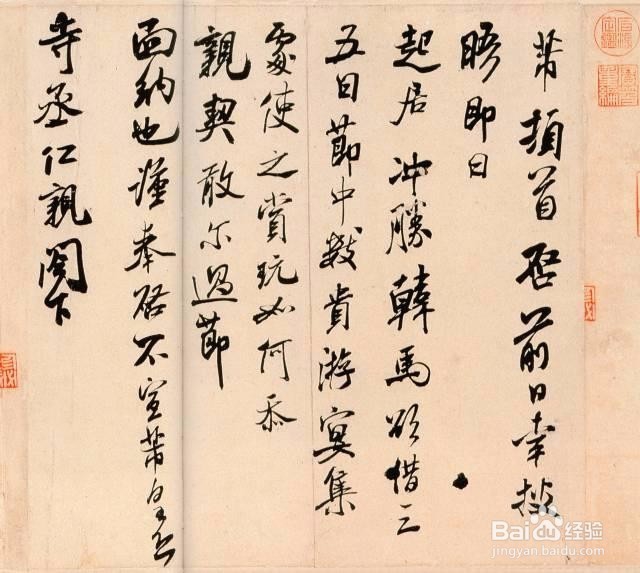 芾頓首啓前日幸披
晤即日
起居冲勝韓馬欲借三
五日節中數貴游宴集
處使之賞玩如何忝
親契敢尔過節
面納也謹奉啓不宣芾皇恐
寺丞仁親閣下
Baidu经验
jingyan.baidu.com